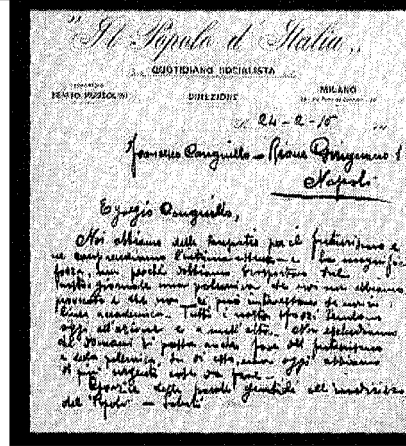 "Il Popolo d'Italia"
QUOTIDIANO SOCIALISTA
BENITO MUSSOLINI DIREZIONE MILANO
24-2-15
Francesco Cangiullo - Rione
Napoli
Egregio Cangiullo,
Noi abbiamo delle simpatie per il futurismo e
ne comprendiamo l'intima essenza e la magnifica
forza, ma perché dobbiamo trasportare sul
nostro giornale una polemica che noi non abbiamo
e che non può interessare da vicino
accademica. Tutti i nostri sforzi tendono
oggi all'azione e a null'altro. Non escludiamo
che domani si possa anche fare del futurismo
e della polemica su di esso, ma oggi abbiamo
di più urgenti cose da fare.
Grazie delle parole gentili all'indirizzo
del Popolo - Saluti